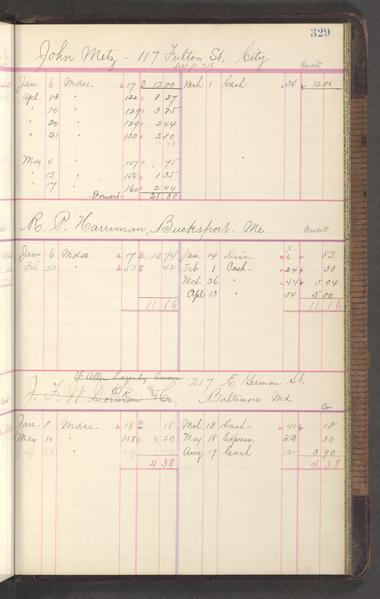 329
John Metz - 117 Fulton St. City
Credit
Jan 6 Mdse 17 12.00 Mch 1 Cash 34 12.00
Apl 13 " 120 8 37
" 20 " 129 3 75
" 20 " 129 2 44
" 21 " 130 2 80
May 4 " 147 .75
" 12 " 1 35
" 17 " 160 2 44
Forward 21.30
R. P. Harriman, Bucksport - Me.
Credit
Jan 6 Mdse 17 10 74 Jan. 14 Disc. 82
Feb 23 " 42 Feb 1 Cash 24 30
Mch 26 " 44 5.04
Apl 13 " 54 5.00
11 16 11 16
217 E German St.
J. F. W. Dorman Co, Baltimore Md
Cr
Jan. 8 Mdse. 18 18 Mch 18 Cash 40 18
May 14 " 158 4 20 May 18 Express. 30
Aug 17 Cash 3 90
4 38 4 38